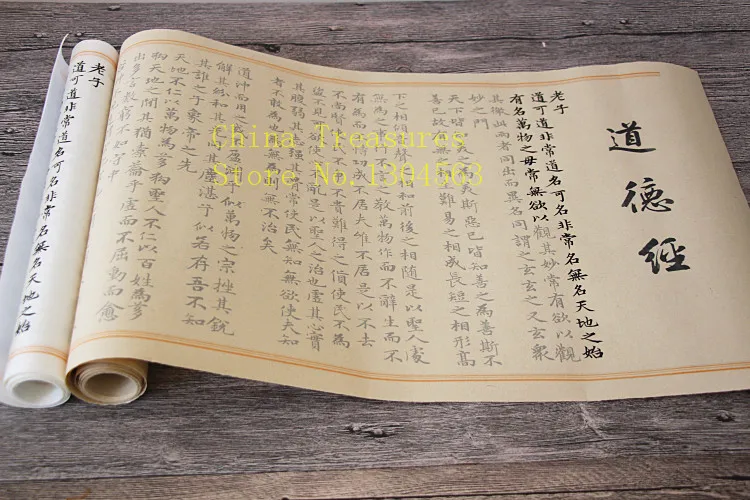 道德經
老子
道可道非常道名可名非常名無名天地之始
有名萬物之母常無欲以觀其妙常有欲以觀
其徼此兩者同出而異名同謂之玄玄之又玄眾
妙之門
天下皆知美之為美斯惡已皆知善之為善斯不
善已故有無之相生難易之相成長短之相形高
下之相傾音聲之相和前後之相隨是以聖人處
無為之事行不言之教萬物作而不辭生而不
有為而不恃功成不居夫惟不居是以不去
不尚賢使民不爭不貴難得之貨使民不為
盜不見可欲使心不亂是以聖人之治也虛其心實
其腹弱其志強其骨常使民無知無欲使夫知
者不敢為也為無為則無不治矣
道沖而用之或不盈淵乎似萬物之宗挫其銳
解其紛和其光同其塵湛兮似若存吾不知
其誰之子象帝之先
天地不仁以萬物為芻狗聖人不仁以百姓為芻
狗天地之間其猶橐籥乎虛而不屈動而愈
出多言數窮不如守中
老子
道可道非常道名可名非常名無名天地之始
China Treasures
Store No.1304563